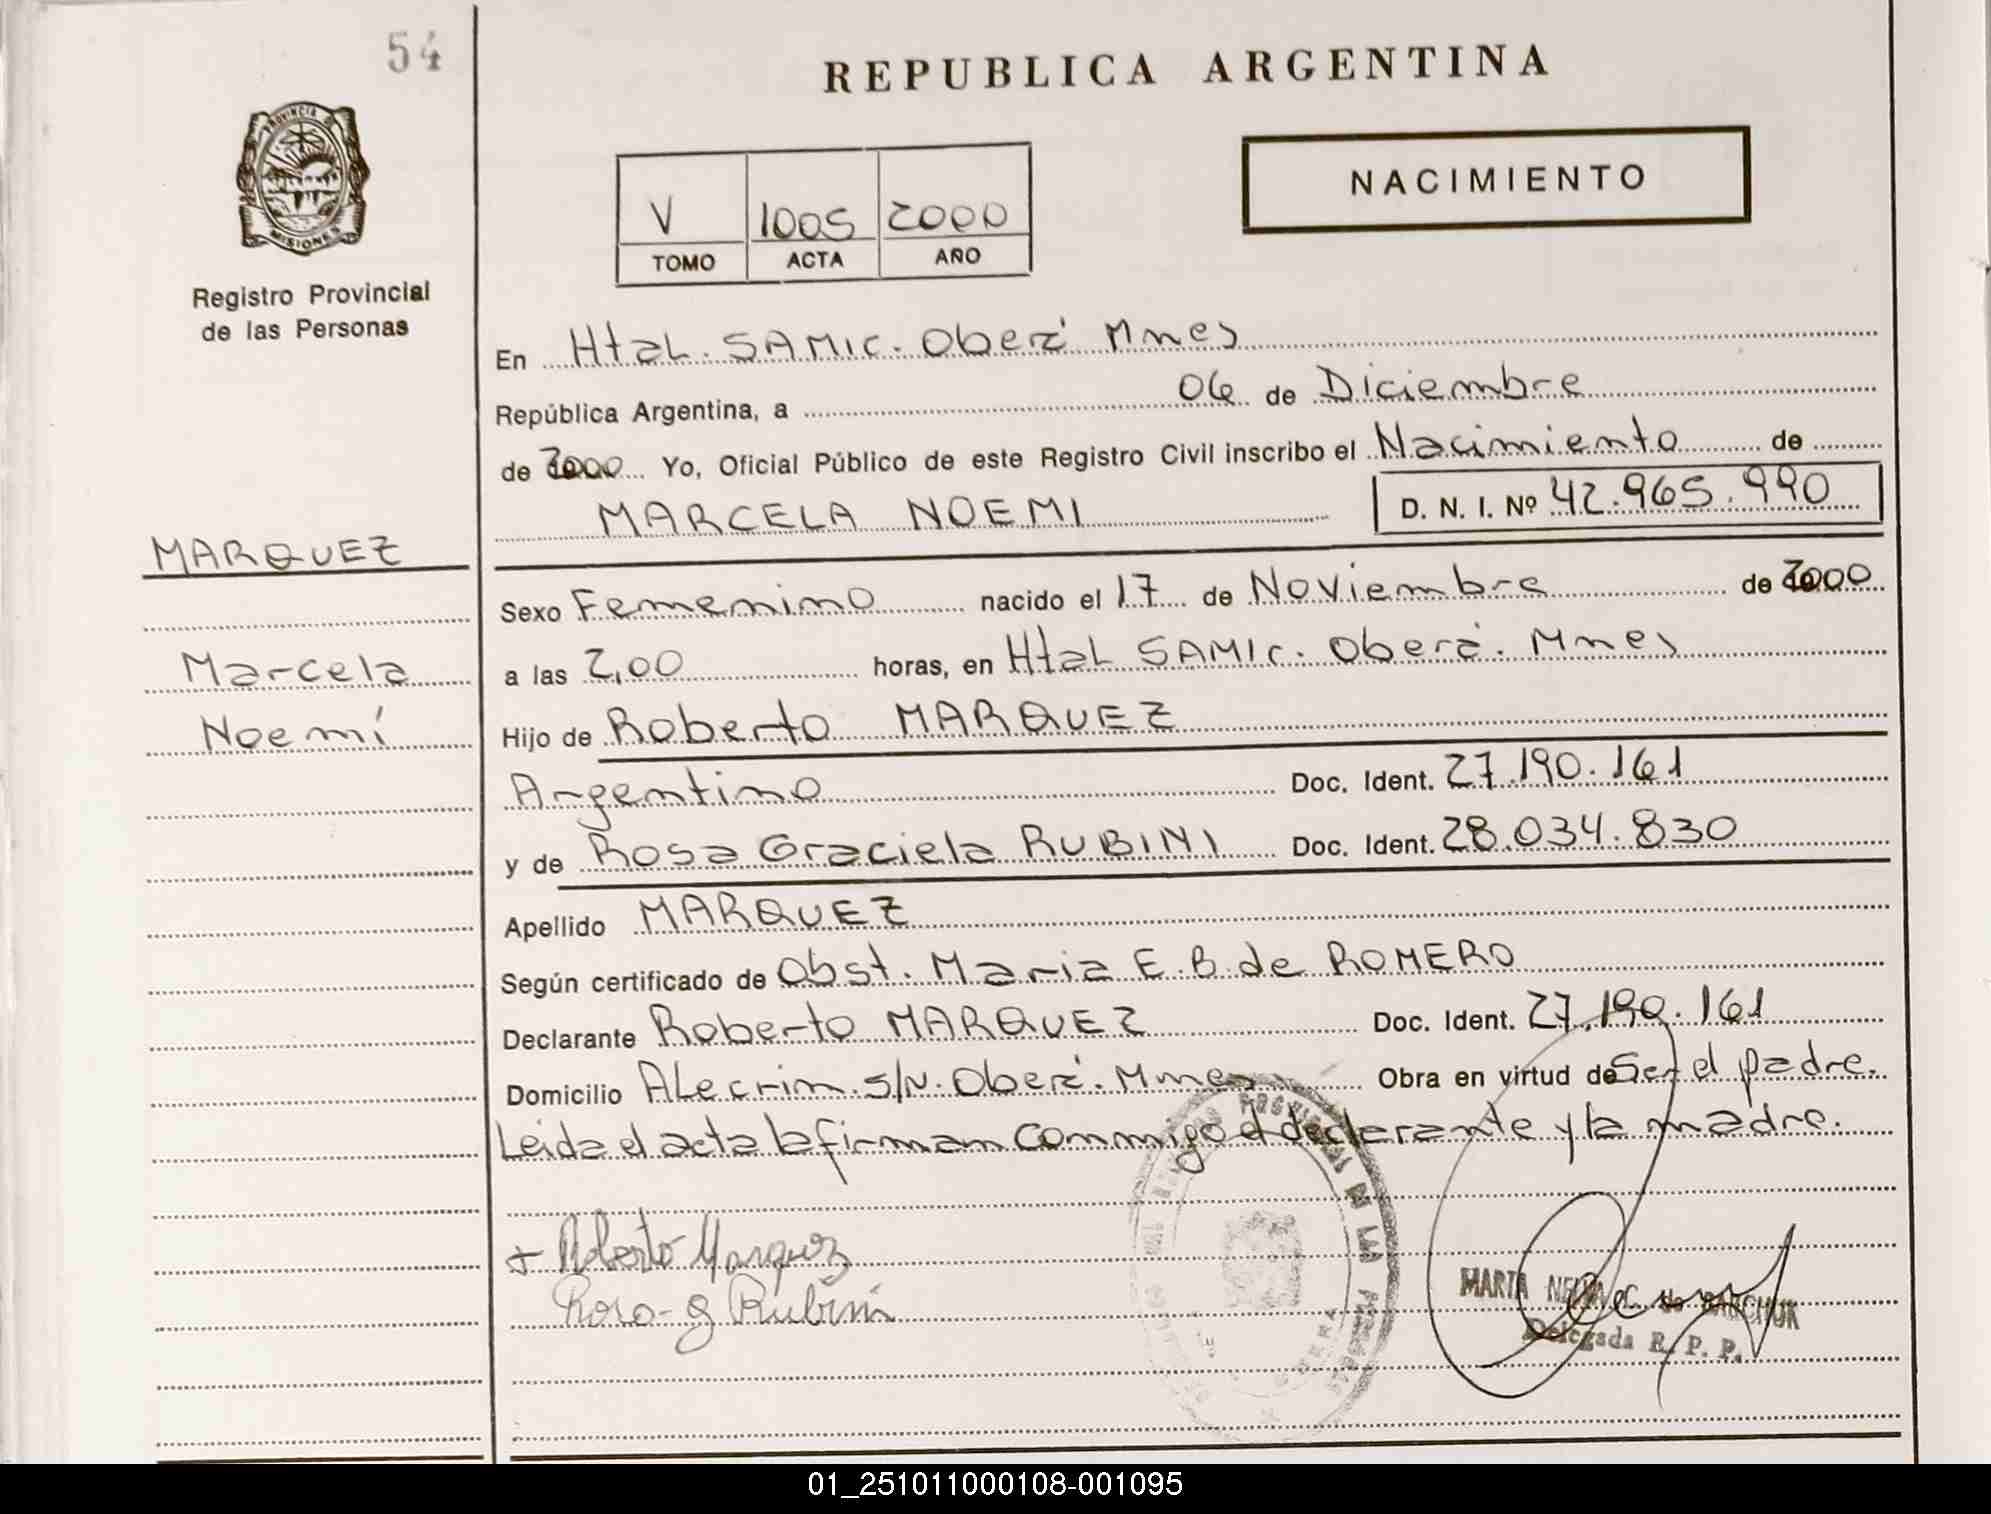 54
REPUBLICA ARGENTINA
PROVINCIA DE
MISIONES
Registro Provincial
de las Personas
V 1005 2000
TOMO ACTA AÑO
NACIMIENTO
En Htal. SAMIC. Oberá Mnes
República Argentina, a 06 de Diciembre
de 2000 Yo, Oficial Público de este Registro Civil inscribo el Nacimiento de
MARCELA NOEMI D. N. I. Nº 42.965.990
MARQUEZ
Marcela
Noemí
Sexo Femenino nacido el 17 de Noviembre de 2000
a las 2,00 horas, en Htal SAMIC. Oberá. Mnes
Hijo de Roberto MARQUEZ
Argentino Doc. Ident. 27.190.161
y de Rosa Graciela RUBINI Doc. Ident. 28.034.830
Apellido MARQUEZ
Según certificado de Obst. Maria E.B. de ROMERO
Declarante Roberto MARQUEZ Doc. Ident. 27.190.161
Domicilio ALecrin. s/N. Oberá. Mnes Obra en virtud de Ser el padre.
Leida el acta la firman conmigo el declarante y la madre.
Roberto Marquez
Rosa G Rubini
MARTA
Delegada R. P. P.
01_251011000108-001095